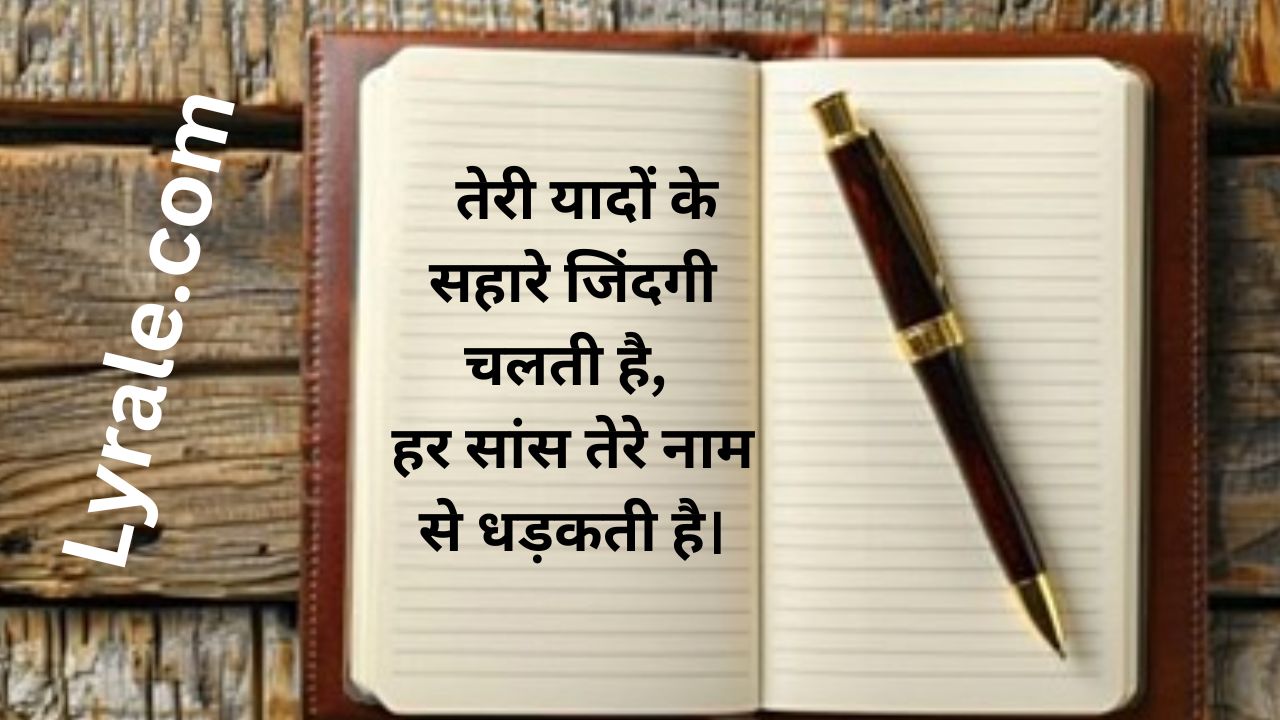 Lyrale.com
तेरी यादों के
सहारे जिंदगी
चलती है,
हर सांस तेरे नाम
से धड़कती है।